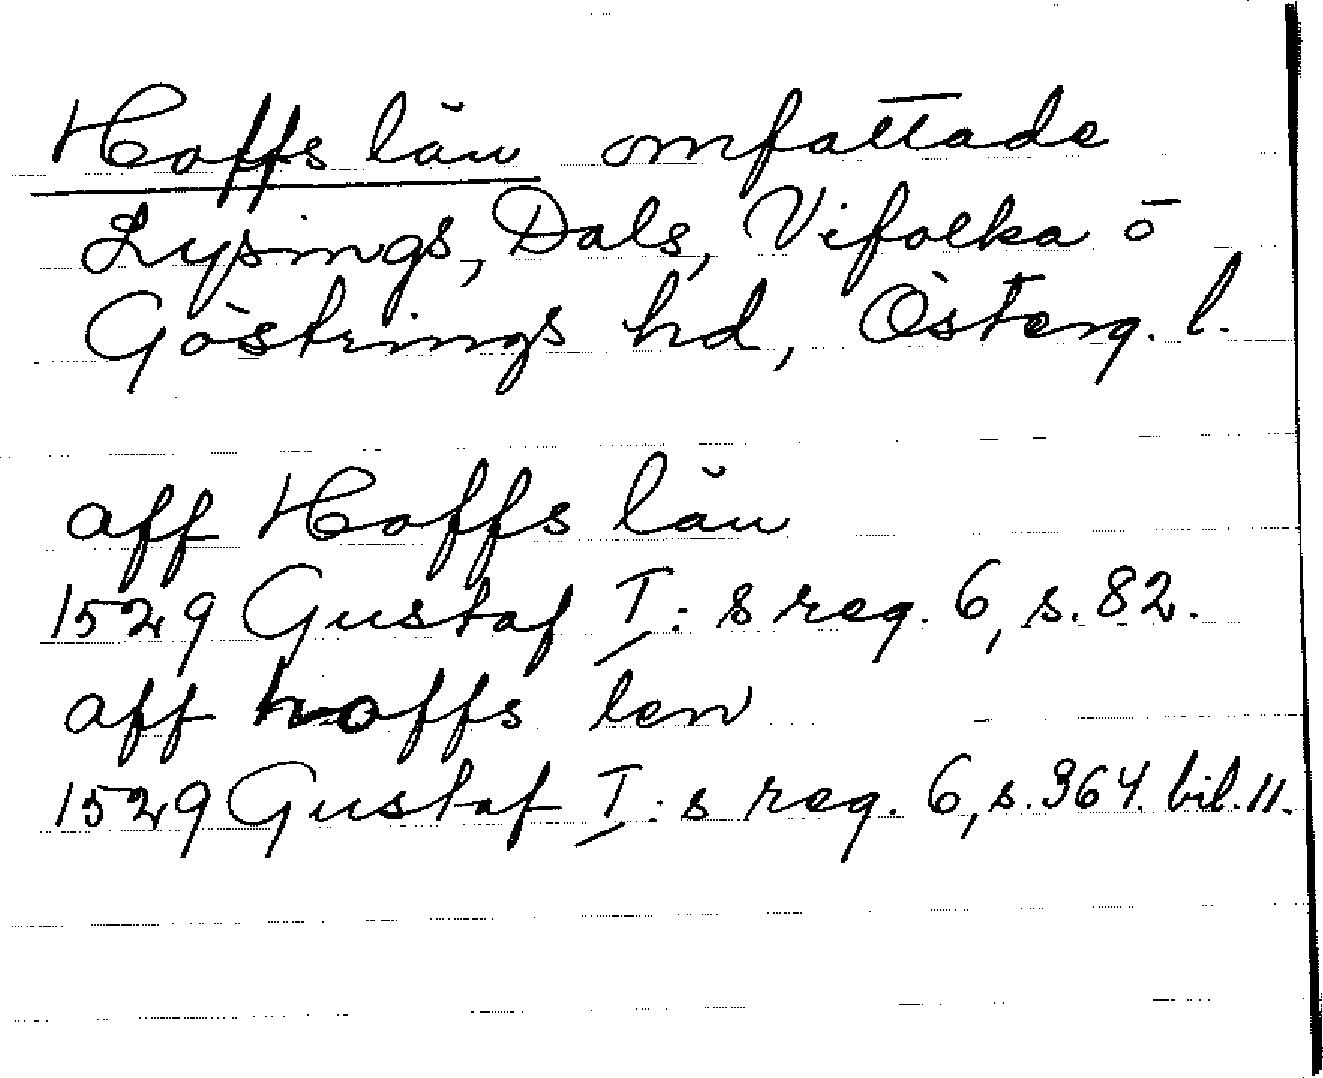 Hoffs län omfattade
Lysings, Dals, Vifolka o
Göstrings hd, Österg. l.
aff Hoffs län
1529 Gustaf I: s reg. 6, s. 82.
aff hoffs len
1529 Gustaf I: s reg. 6, s. 364. bil. 11.